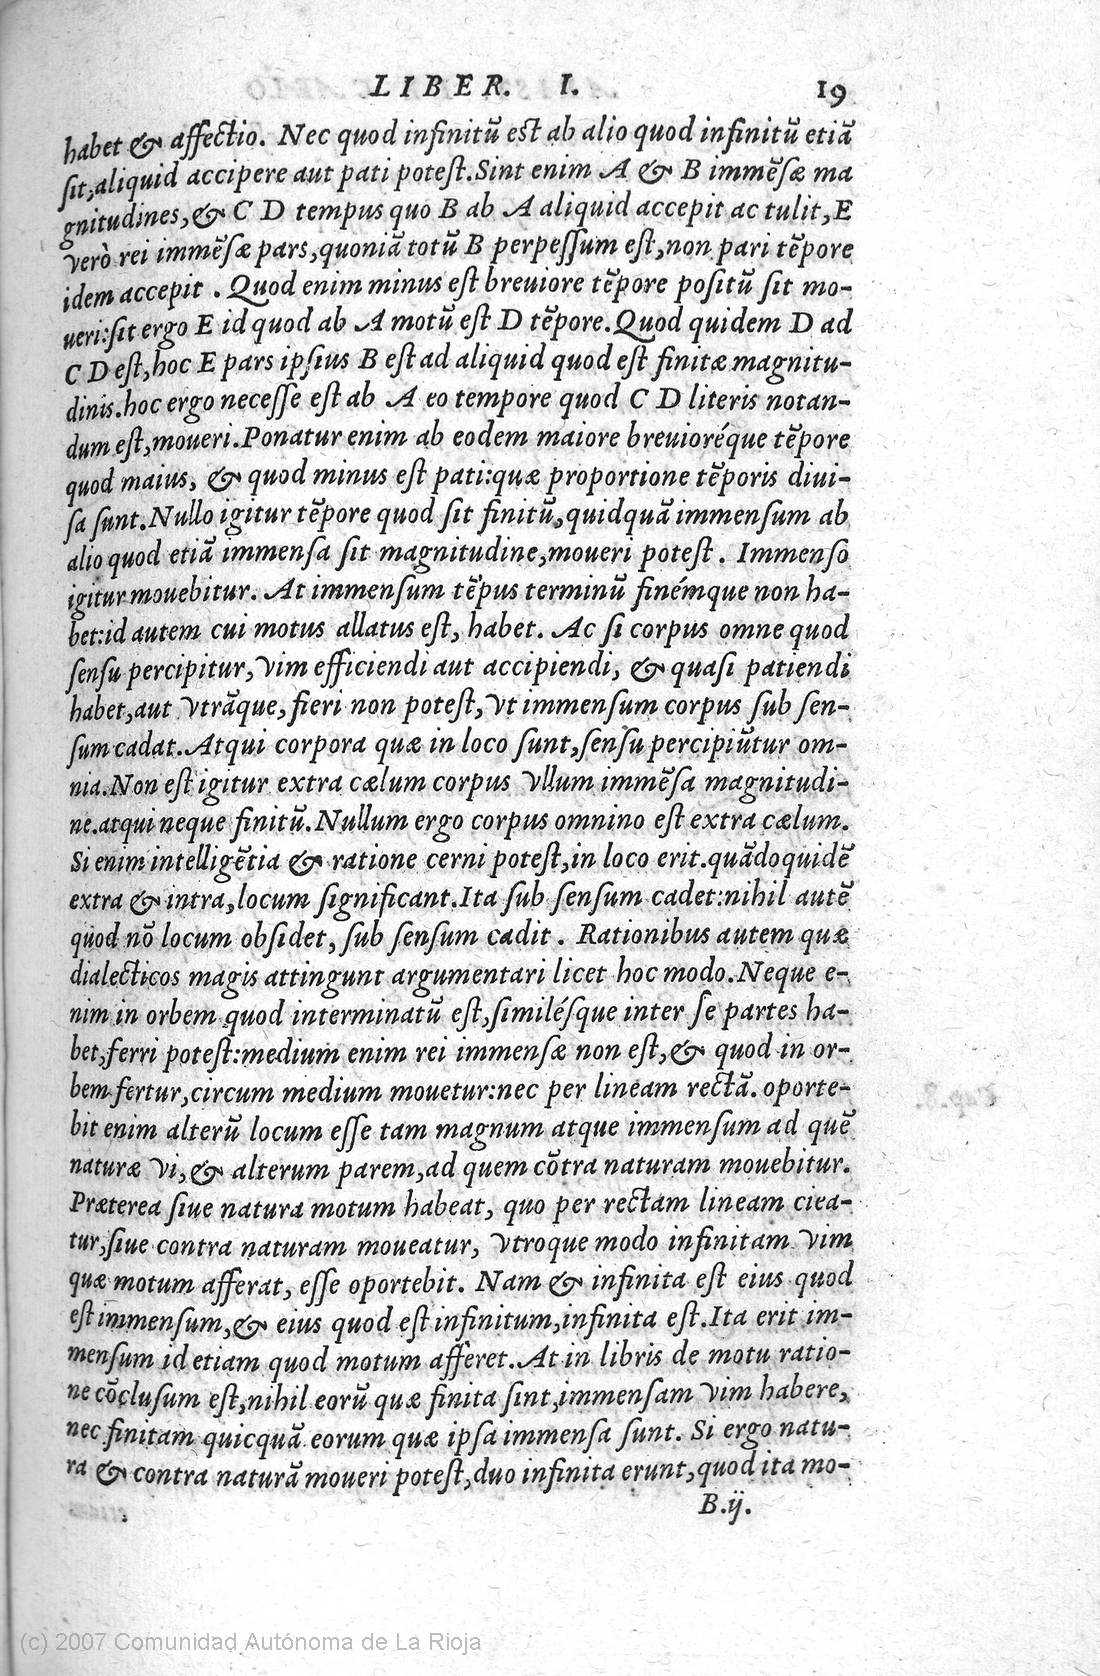 LIBER. I. 19
habet & affectio. Nec quod infinitũ est ab alio quod infinitũ etiã
sit, aliquid accipere aut pati potest. Sint enim A & B immẽsæ ma
gnitudines, & C D tempus quo B ab A aliquid accepit ac tulit, E
verò rei immẽsæ pars, quoniã totũ B perpessum est, non pari tẽpore
idem accepit . Quod enim minus est breuiore tẽpore positũ sit mo-
ueri: sit ergo E id quod ab A motũ est D tẽpore. Quod quidem D ad
C D est, hoc E pars ipsius B est ad aliquid quod est finitæ magnitu-
dinis. hoc ergo necesse est ab A eo tempore quod C D literis notan-
dum est, moueri. Ponatur enim ab eodem maiore breuioréque tẽpore
quod maius, & quod minus est pati: quæ proportione tẽporis diui-
sa sunt. Nullo igitur tẽpore quod sit finitũ, quidquã immensum ab
alio quod etiã immensa sit magnitudine, moueri potest . Immenso
igitur mouebitur. At immensum tẽpus terminũ finémque non ha-
bet: id autem cui motus allatus est, habet. Ac si corpus omne quod
sensu percipitur, vim efficiendi aut accipiendi, & quasi patiendi
habet, aut vtrãque, fieri non potest, vt immensum corpus sub sen-
sum cadat. Atqui corpora quæ in loco sunt, sensu percipiũtur om-
nia. Non est igitur extra cælum corpus vllum immẽsa magnitudi-
ne. atqui neque finitũ. Nullum ergo corpus omnino est extra cælum.
Si enim intelligẽtia & ratione cerni potest, in loco erit. quãdoquidẽ
extra & intra, locum significant. Ita sub sensum cadet: nihil autẽ
quod nõ locum obsidet, sub sensum cadit . Rationibus autem quæ
dialecticos magis attingunt argumentari licet hoc modo. Neque e-
nim in orbem quod interminatũ est, similésque inter se partes ha-
bet, ferri potest: medium enim rei immensæ non est, & quod in or-
bem fertur, circum medium mouetur: nec per lineam rectã. oporte-
bit enim alterũ locum esse tam magnum atque immensum ad quẽ
naturæ vi, & alterum parem, ad quem cõtra naturam mouebitur.
Præterea siue natura motum habeat, quo per rectam lineam ciea-
tur, siue contra naturam moueatur, vtroque modo infinitam vim
quæ motum afferat, esse oportebit. Nam & infinita est eius quod
est immensum, & eius quod est infinitum, infinita est. Ita erit im-
mensum id etiam quod motum afferet. At in libris de motu ratio-
ne cõclusum est, nihil eorũ quæ finita sint, immensam vim habere,
nec finitam quicquã eorum quæ ipsa immensa sunt. Si ergo natu-
ra & contra naturã moueri potest, duo infinita erunt, quod ita mo-
B.ij.
(c) 2007 Comunidad Autónoma de La Rioja